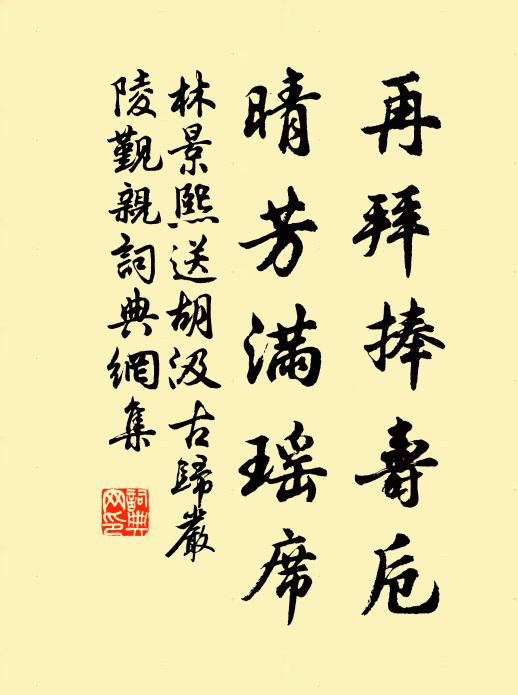 再拜捧壽卮
晴芳滿瑤席
林景熙送胡汲古歸嚴
陵覲親詞典網集
詞典網印